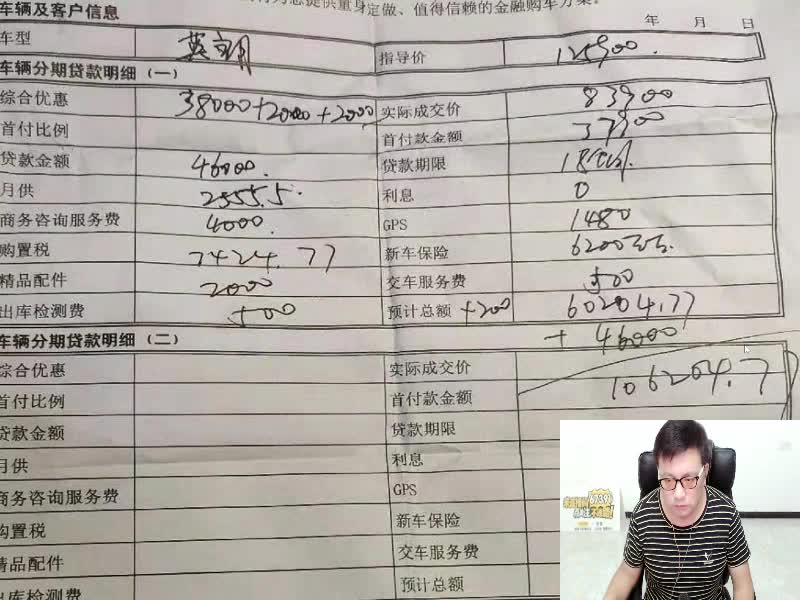 身定做、值得信赖的金融购车方案。
车辆及客户信息 年 月 日
车型 英朗 指导价 125900.
车辆分期贷款明细（一）
综合优惠 38000+2000+2000 实际成交价 83900
首付比例 首付款金额 37900
贷款金额 46000. 贷款期限 18
月供 2555.5 利息 0
商务咨询服务费 4000. GPS 1480
购置税 7424.77 新车保险 6200
精品配件 2000 交车服务费 500
出库检测费 500 预计总额 +200 60204.77
+ 46000
车辆分期贷款明细（二）
106204.7
综合优惠 实际成交价
首付比例 首付款金额
贷款金额 贷款期限
月供 利息
商务咨询服务费 GPS
购置税 新车保险
精品配件 交车服务费
出库检测费 预计总额